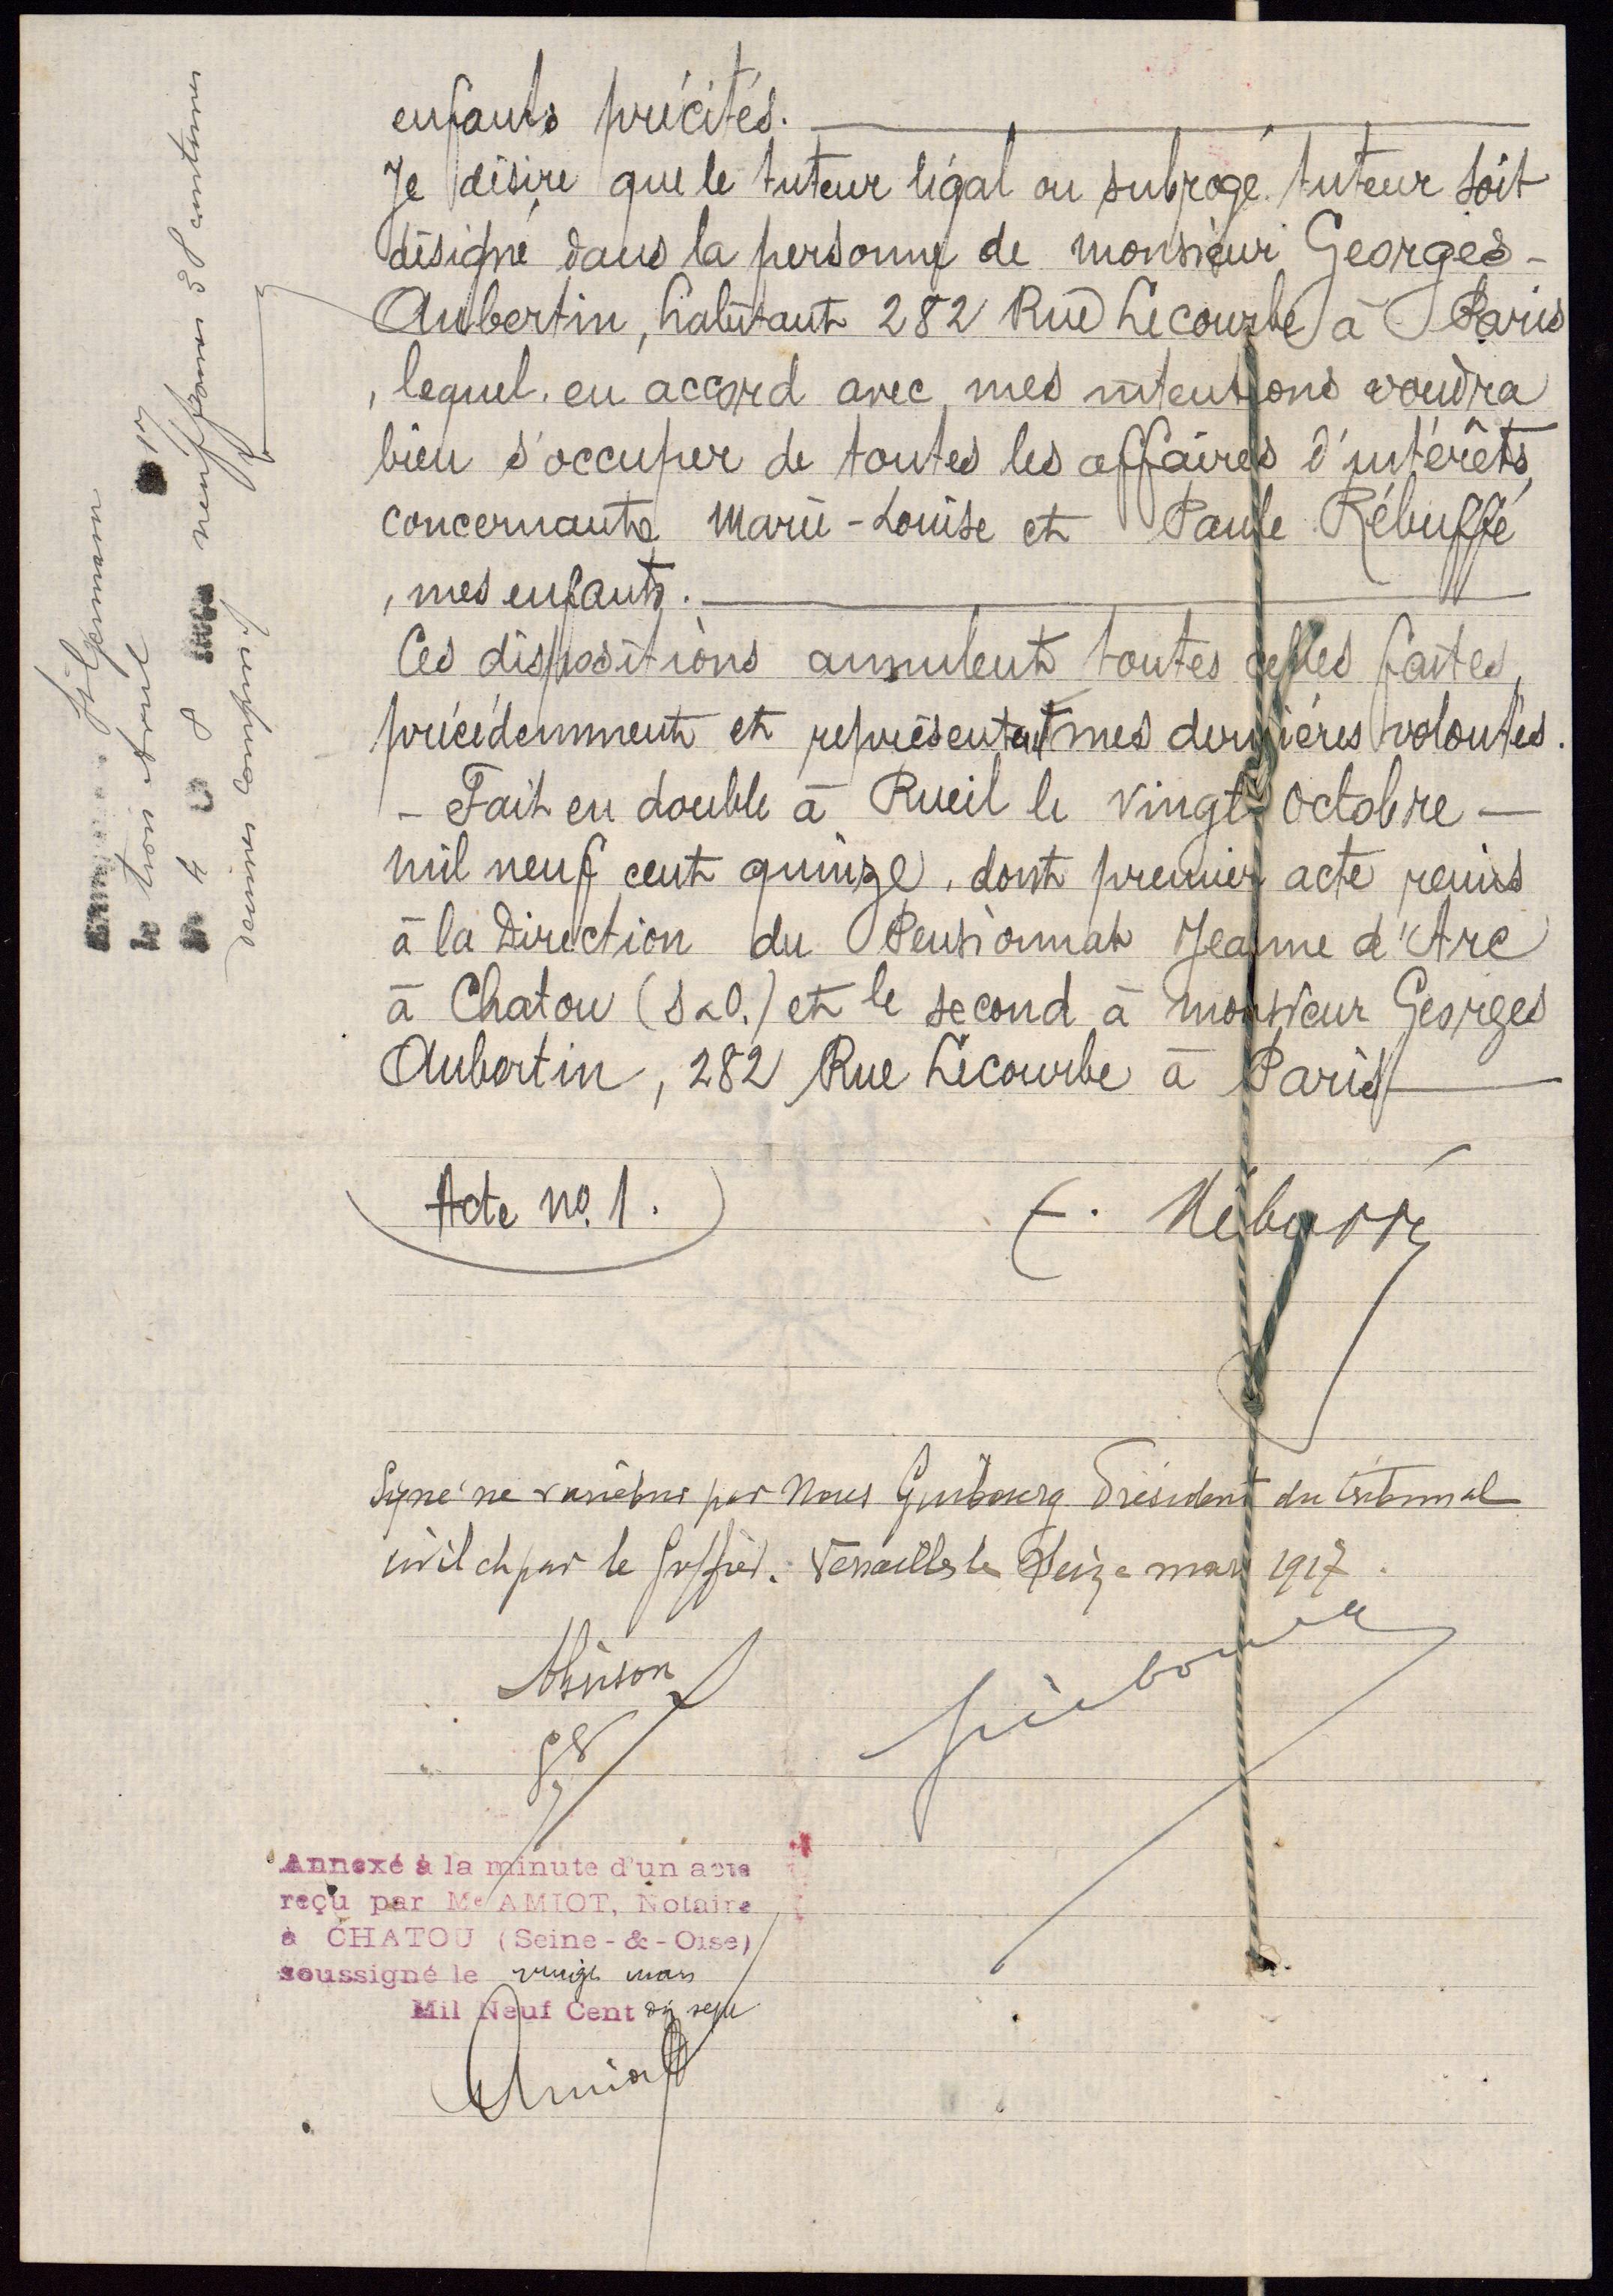 enfants précités.
Je désire que le tuteur légal ou subrogé tuteur soit
désigné dans la personne de monsieur Georges-
Aubertin, habitant 282 Rue Lecourbe à Paris
, lequel, en accord avec mes intentions voudra
bien s'occuper de toutes les affaires d'intérêts,
concernants Marie-Louise et Paule Rébuffé
, mes enfants.
Ces dispositions annulent toutes celles faites
précédemment et représentent mes dernières volontés.
- Fait en double à Rueil le vingt octobre -
mil neuf cent quinze, dont premier acte remis
à la Direction du Pensionnat Jeanne d'Arc
à Chatou (S&O.) et le second à monsieur Georges
Aubertin, 282 Rue Lecourbe à Paris
Acte no. 1.
Signé ne varietur par Nous Guibourg Président du tribunal
civil et par le Greffier. Versailles le Seize mars 1917.
Guibourg
Annexé à la minute d'un acte
reçu par Me AMIOT, Notaire
à CHATOU (Seine-&-Oise)
soussigné le seize mars
Mil Neuf Cent dix sept
Amiot
le trois Avril 17
neuf francs 38 centimes
décimes compris